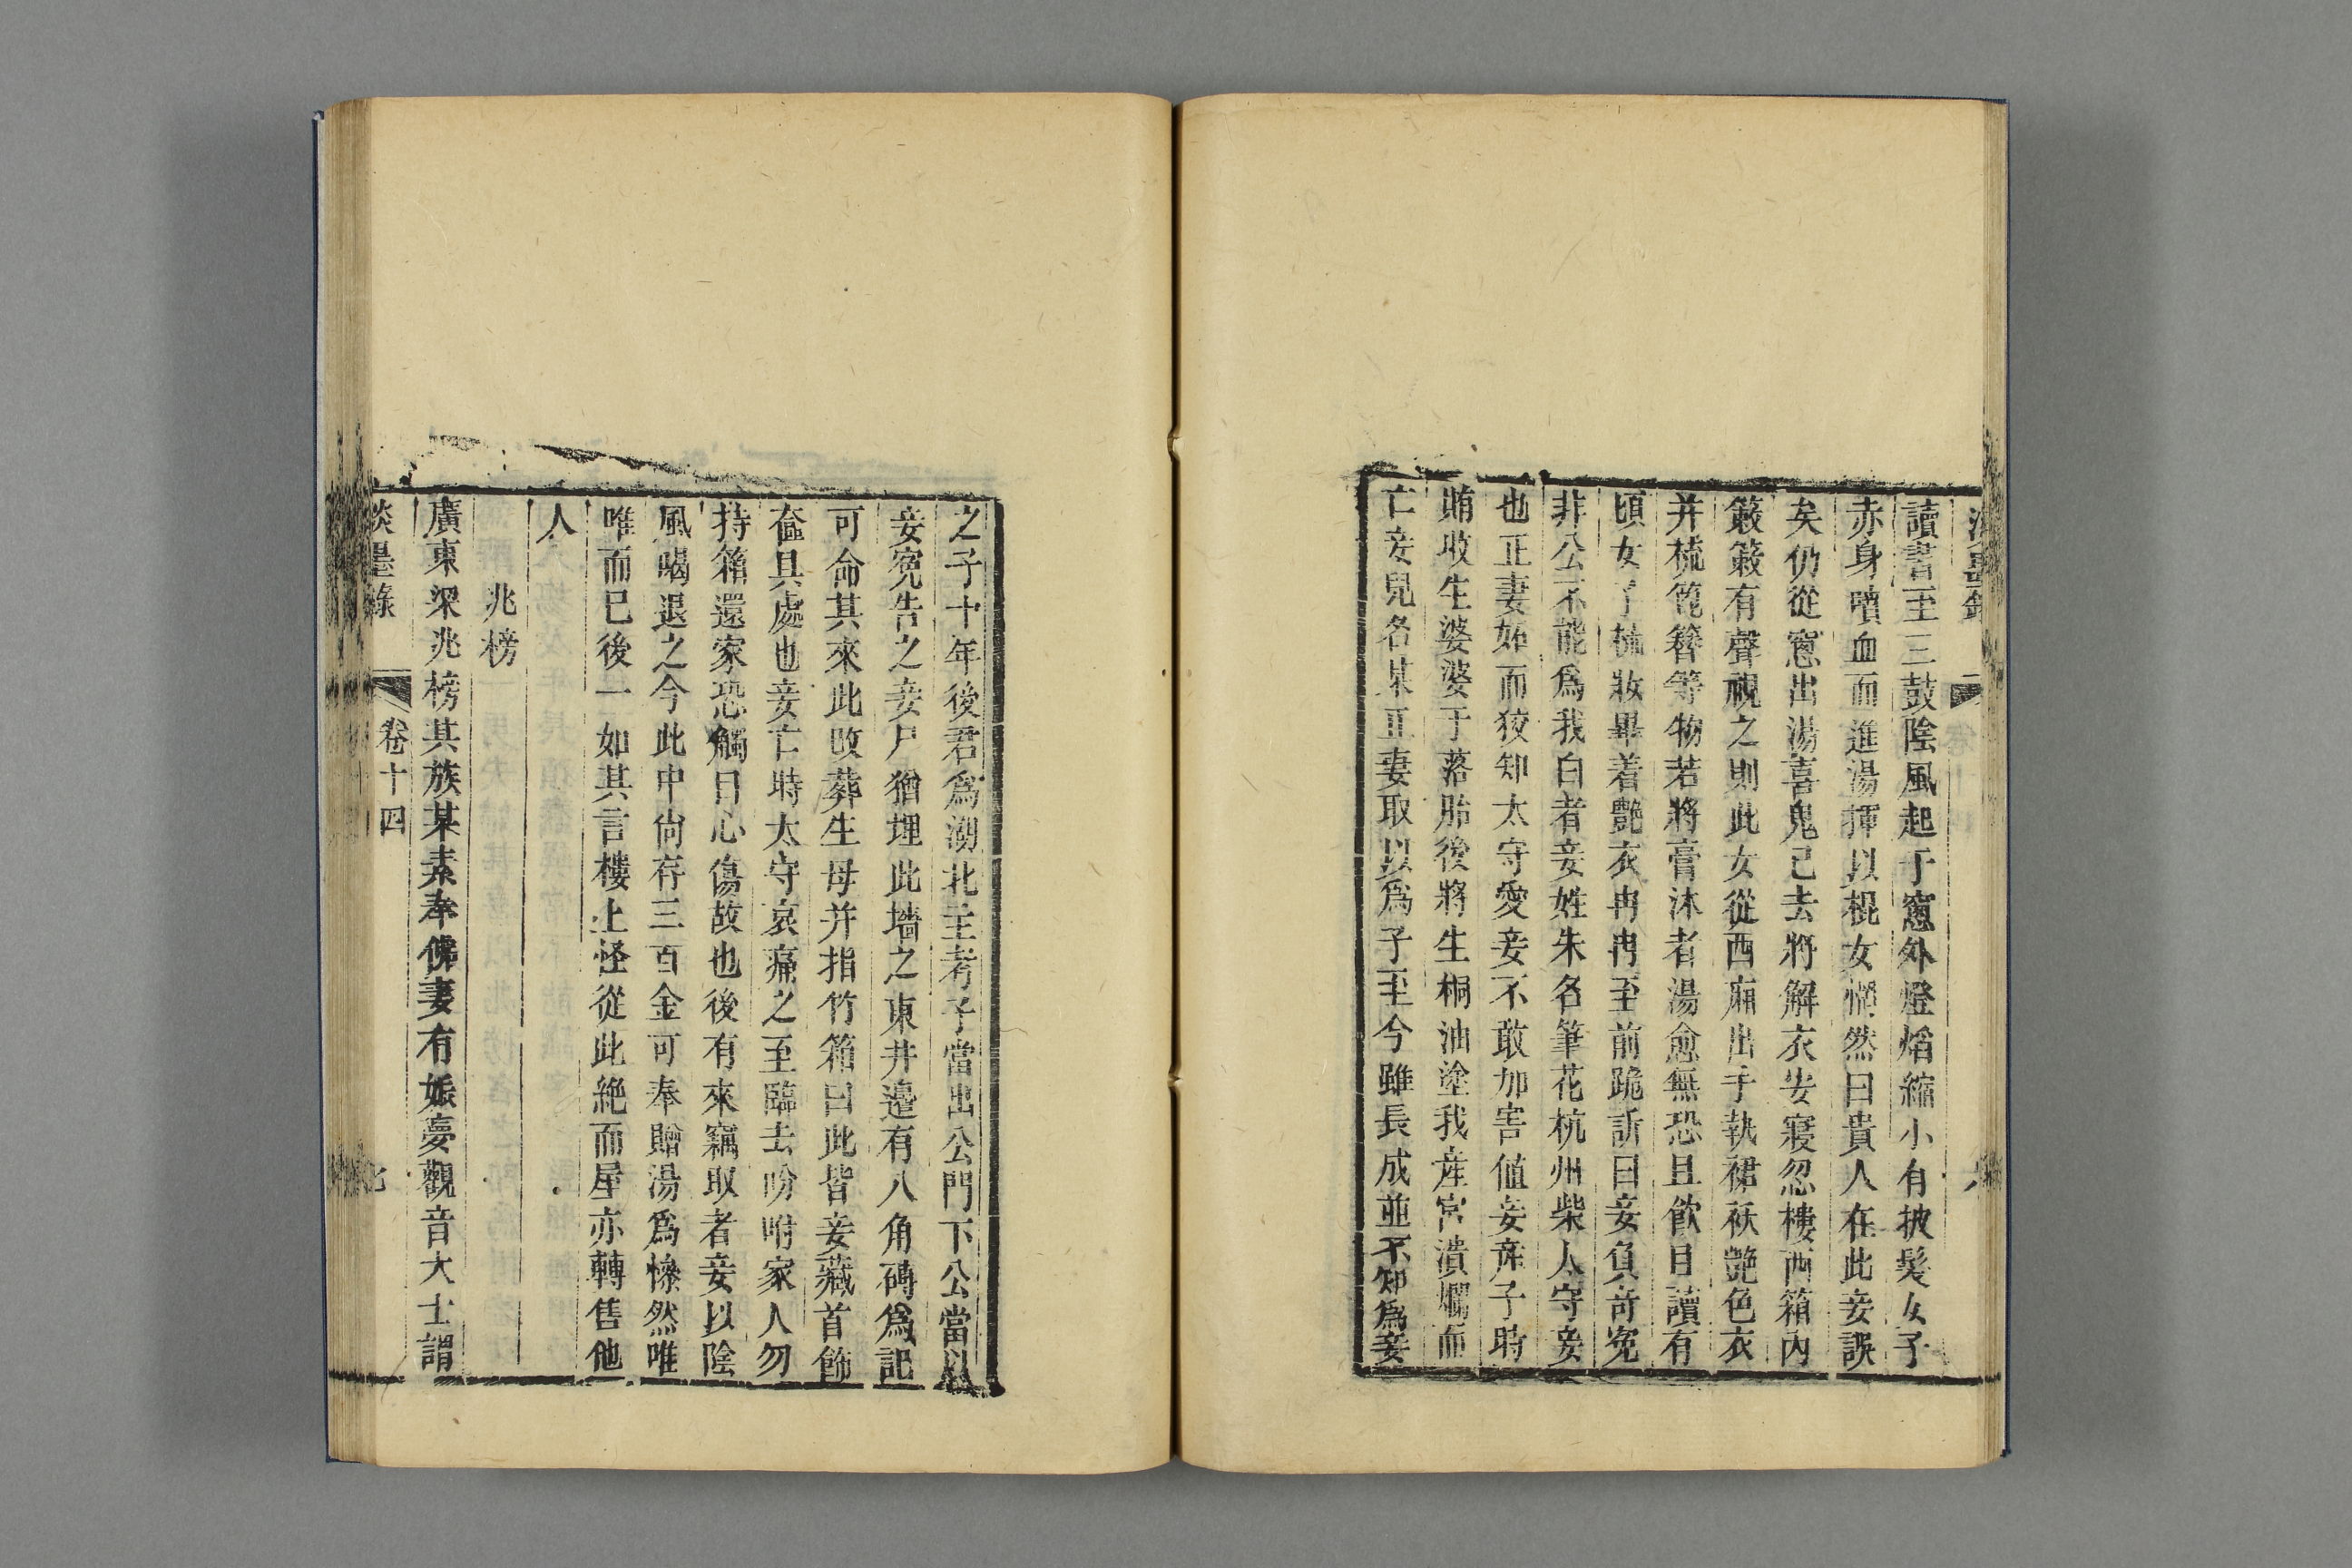 淡墨錄
讀書至三鼓陰風起于窻外燈熖縮小有披髮女子
赤身噴血而進湯揮以棍女愕然曰貴人在此妾誤
矣仍從窻出湯喜鬼已去將解衣安寢忽樓西箱內
簌簌有聲視之則此女從西廂出手執裙袄艶色衣
并梳箆簪等物若將膏沐者湯愈無恐且飲且讀有
頃女子梳妝畢着艶衣冉冉至前跪訴曰妾負奇寃
非公不能爲我白者妾姓朱名筆花杭州柴太守妾
也正妻妬而狡知太守愛妾不敢加害値妾產子時
賄收生婆婆于落胎後將生桐油塗我產宮潰爛而
亡妾兒名某正妻取以爲子至今雖長成並不知爲妾
之子十年後君爲湖北主考子當出公門下公當以
妾寃告之妾尸猶埋此墻之東井邊有八角磚爲記
可命其來此改葬生母并指竹箱曰此皆妾藏首飾
奩具處也妾亡時太守哀痛之至臨去吩咐家人勿
持箱還家恐觸目心傷故也後有來竊取者妾以陰
風喝退之今此中尚存三百金可奉贈湯爲慘然唯
唯而已後一如其言樓上怪從此絕而屋亦轉售他
人
兆榜
廣東梁兆榜其族某素奉佛妻有娠夢觀音大士謂
淡墨錄
卷十四